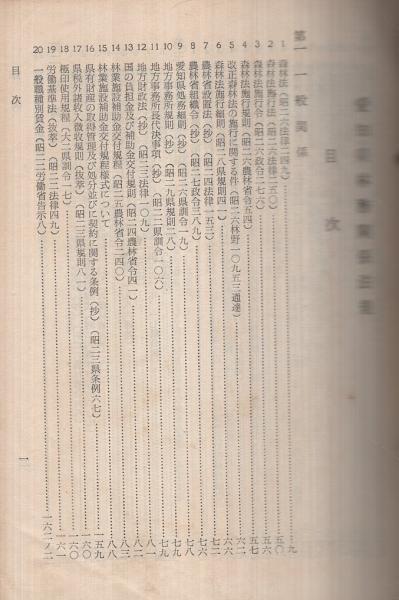 目次
第一 一般関係
1 森林法(昭二六法律二四九)……九
2 森林法施行法(昭二六法律二五〇)……五〇
3 森林法施行令(昭二六政令二七六)……五六
4 森林法施行規則(昭二六農林省令五四)……五七
5 改正森林法の施行に関する件(昭二六林野一〇九五三通達)……六六
6 森林法施行細則(昭二八県規則四一)……七二
7 農林省設置法(抄)(昭二四法律一五三)……七六
8 農林省組織令(抄)(昭二七政令三八九)……七八
9 愛知県処務細則(抄)(昭二六県訓令一九)……七九
10 地方事務所規則(抄)(昭二九県規則二八)……七九
11 地方事務所長代決事項(抄)(昭二二県訓令一〇六)……七九
12 地方財政法(抄)(昭二三法律一〇九)……八一
13 国の負担金及び補助金交付規則(昭二四農林省令四一)……八三
14 林業施設補助金交付規程(昭二五農林省令二四〇)……八八
15 林業施設補助金交付規程様式について
16 県有財産の取得管理及び処分並びに契約に関する条例(抄)(昭二三県条例六七)……一五九
17 県税外諸収入徴収規則(抜萃)(昭二三県規則八一)……一六〇
18 極印使用規程(大二県訓令一七)……一六〇
19 労働基準法(抜萃)(昭二二法律四九)……一六一
20 一般職種別賃金(昭二二労働省告示八)……一六二ノ二
目次
一